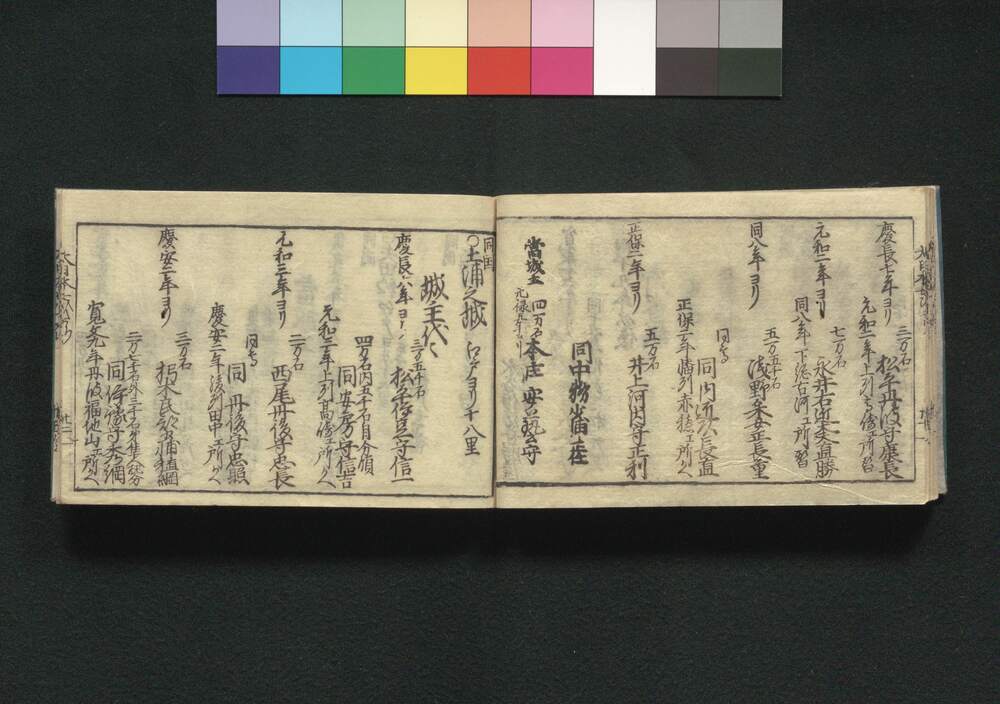 慶長七年ヨリ
三万石
松平丹波守康長
元和二年上列高崎エ所替
元和二年ヨリ
七万石
永井右近大夫直勝
同八年下総古河エ所替
同八年ヨリ
五万五千石
浅野采女正長重
同内匠頭長直
正保二年播列赤穂エ所かへ
正保二年ヨリ
五万石
井上河内守正利
同中務少輔正任
當城主
四万石
元禄五年ヨリ
本庄安藝守
同国
○土浦之城
江戸ヨリ十八里
城主代々
慶長六年ヨリ
三万五千石
松平伊豆守信一
四万石内五千石自分領
同安房守信吉
元和三年上列高崎エ所かへ
元和三年ヨリ
二万石
西尾丹後守忠長
同
丹後守忠照
慶安二年駿列田中エ所かへ
慶安二年ヨリ
三万石
朽木民部少輔稙綱
同伊豫守
寛文九年丹波福地山エ所かへ